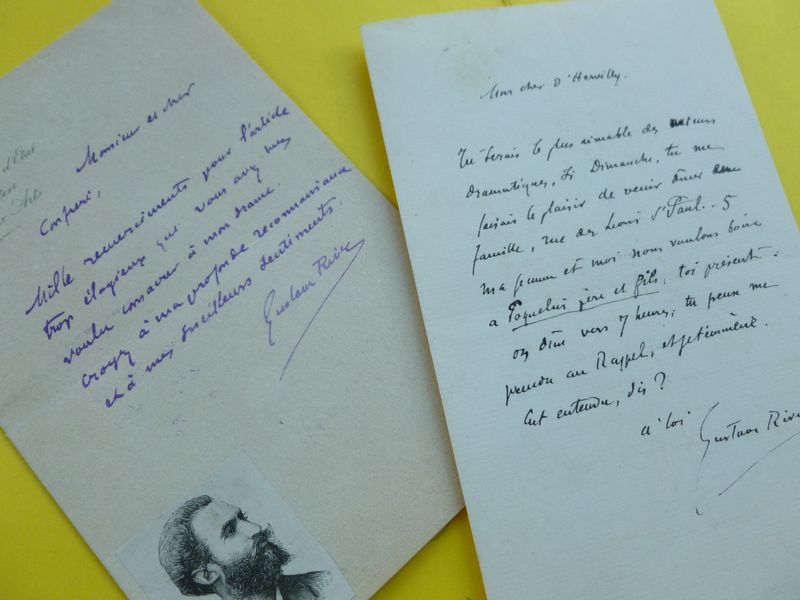 d'État
Arts
Monsieur et cher
Confrère,
Mille remerciments pour l'article
trop élogieux que vous avez bien
voulu consacrer à mon drame.
Croyez à ma profonde reconnaissance
et à mes meilleurs sentiments.
Gustave Rivet
Mon cher d'Hervilly.
Tu serais le plus aimable des auteurs
dramatiques, si Dimanche, tu me
faisais le plaisir de venir dîner en
famille, rue des Lions St Paul. 5
ma femme et moi nous voulons boire
à Poquelin père et fils, toi présent.
on dîne vers 7 heures; tu peux me
prendre au Rappel, et je t'emmène.
C'est entendu, dis ?
à toi
Gustave Rivet